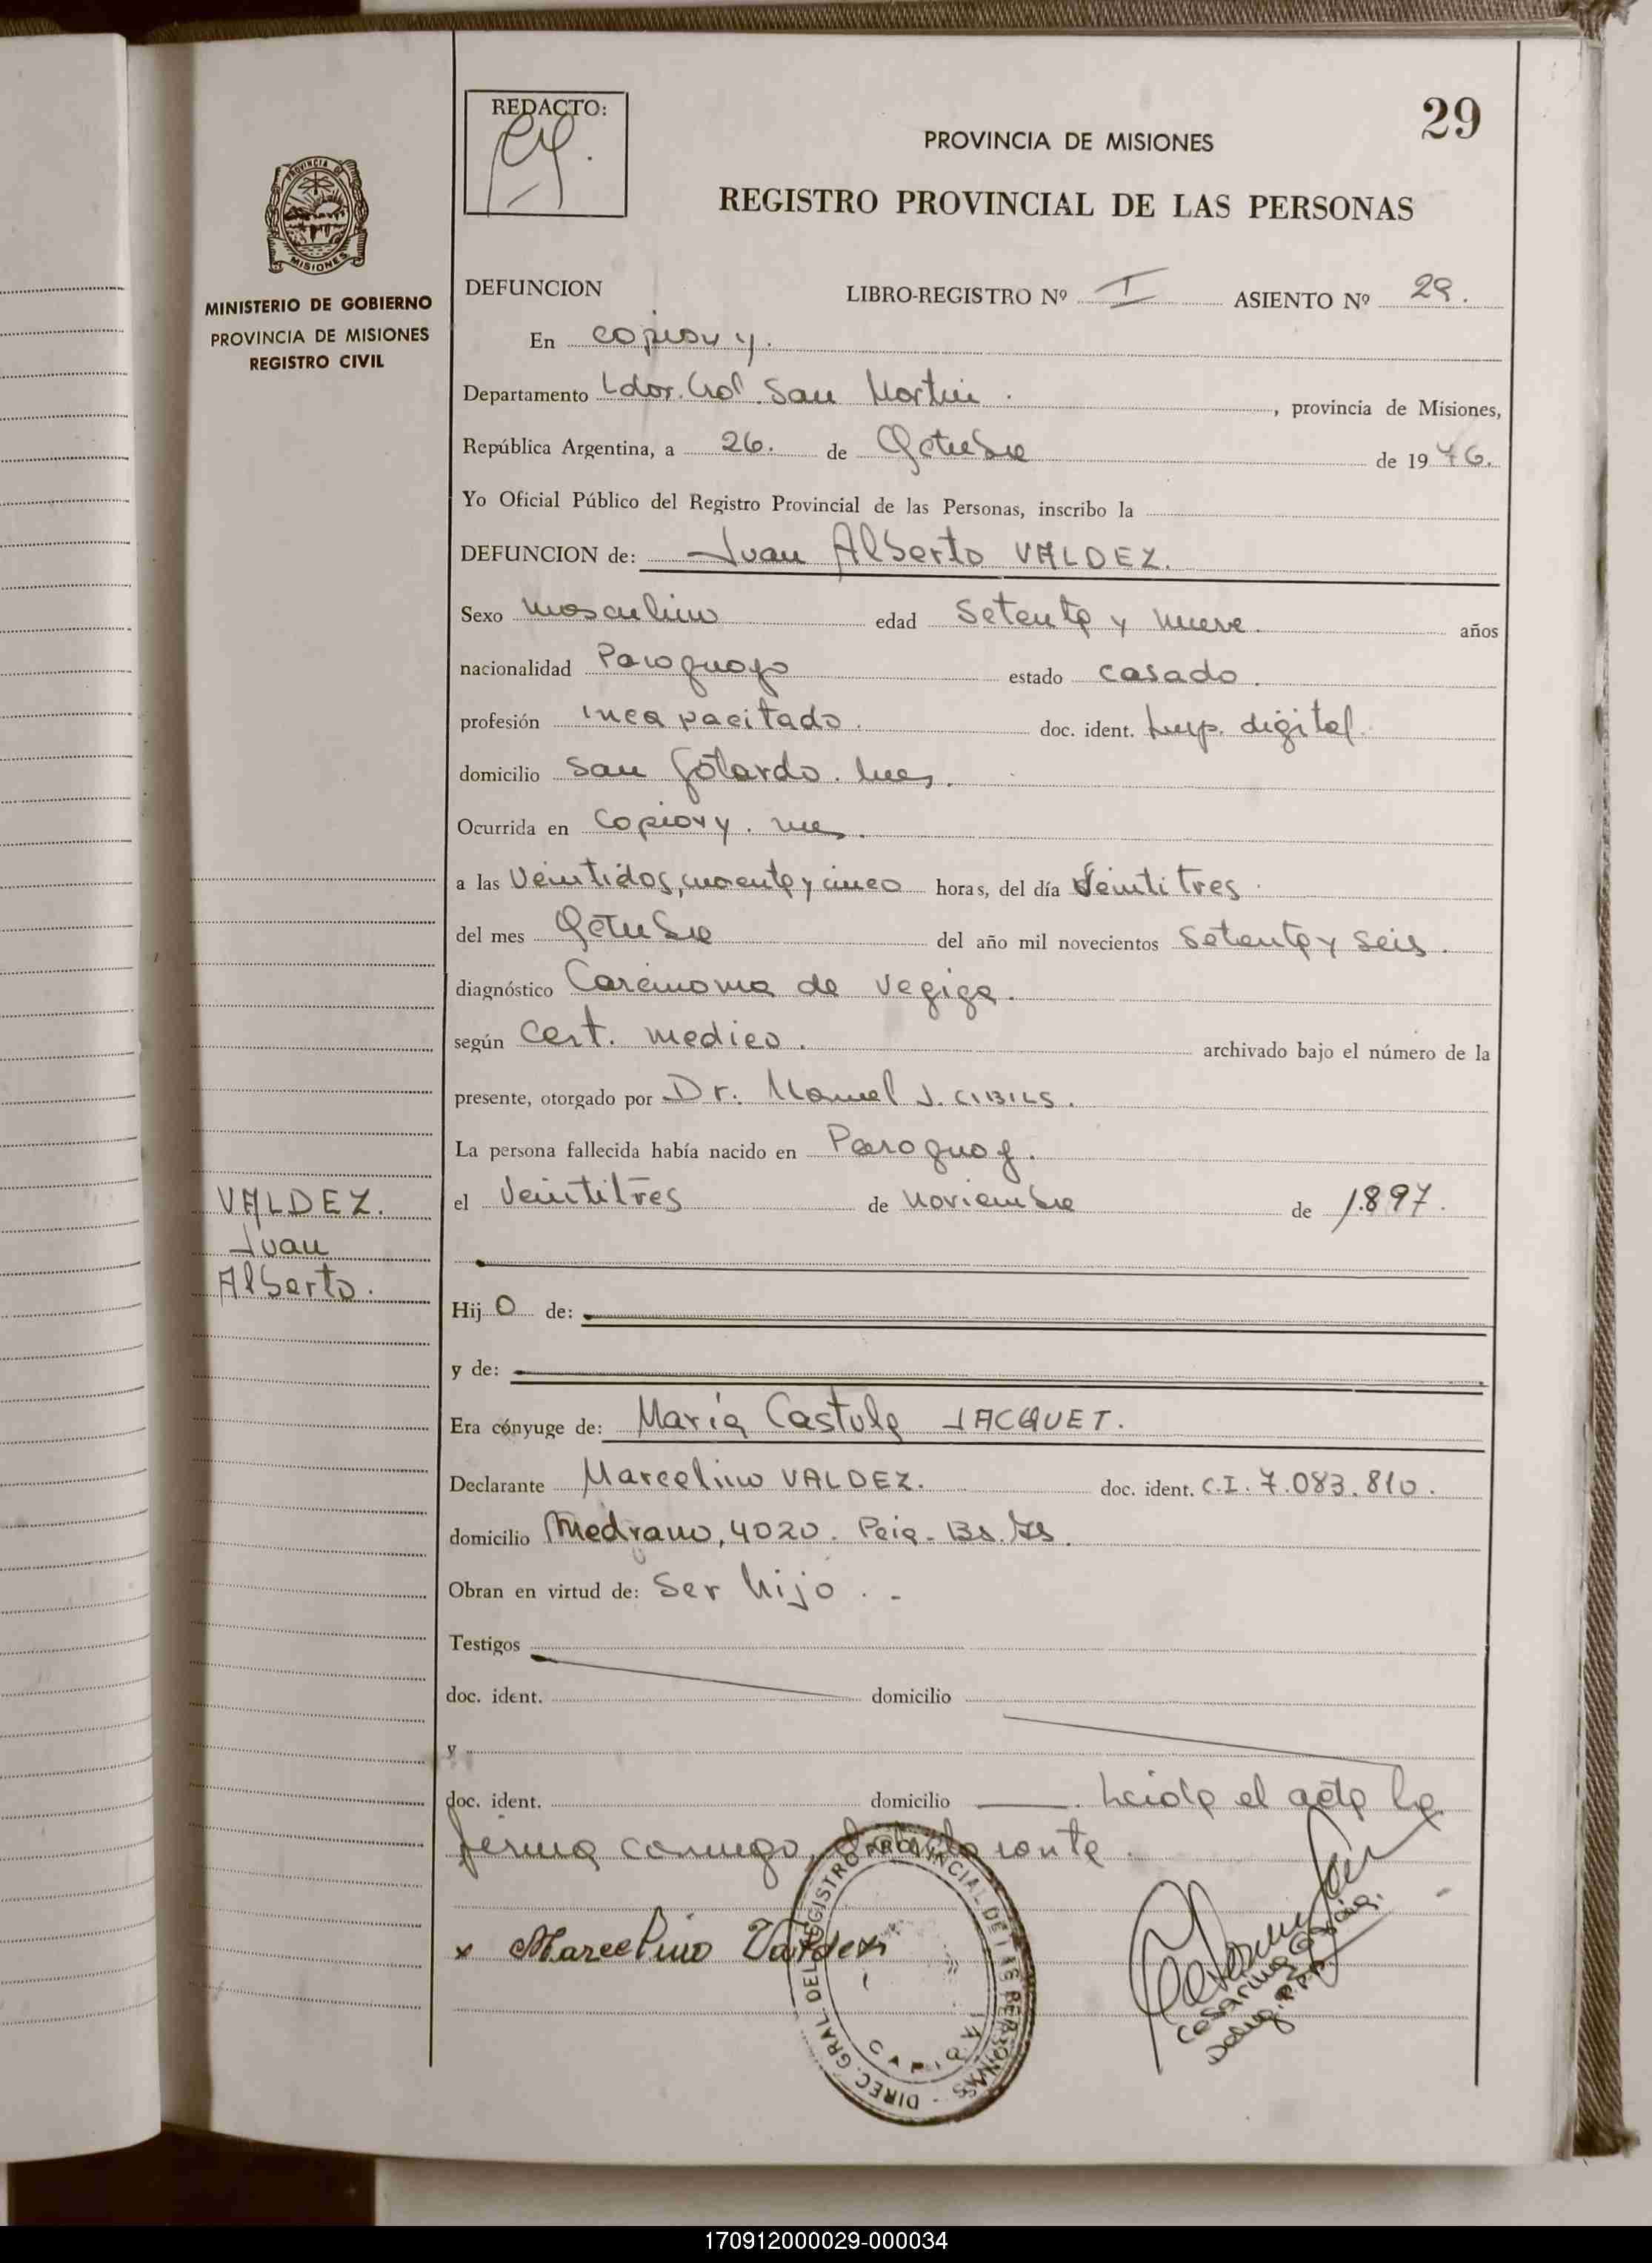 REDACTO:
29
PROVINCIA DE MISIONES
REGISTRO PROVINCIAL DE LAS PERSONAS
PROVINCIA DE
MISIONES
MINISTERIO DE GOBIERNO
PROVINCIA DE MISIONES
REGISTRO CIVIL
DEFUNCION LIBRO-REGISTRO Nº I ASIENTO Nº 29.
En Capiovy.
Departamento Ldor. Gral. San Martin. , provincia de Misiones,
República Argentina, a 26. de Octubre de 1976.
Yo Oficial Público del Registro Provincial de las Personas, inscribo la
DEFUNCION de: Juan Alberto VALDEZ.
Sexo masculino edad Setenta y nueve. años
nacionalidad Paraguayo estado casado.
profesión incapacitado. doc. ident. Imp. digital.
domicilio San Gotardo. Mnes.
Ocurrida en Capiovy. Mnes.
a las Veintidos, cuarenta y cinco horas, del día Veintitres.
del mes Octubre del año mil novecientos Setenta y seis.
diagnóstico Carcinoma de vegiga.
según Cert. medico. archivado bajo el número de la
presente, otorgado por Dr. Manuel J. CIBILS.
La persona fallecida había nacido en Paraguay.
el Veintitres de noviembre de 1.897.
VALDEZ.
Juan
Alberto.
Hijo de:
y de:
Era cónyuge de: María Castula JACQUET.
Declarante Marcelino VALDEZ. doc. ident. C.I. 7.083.810.
domicilio Medrano, 4020. Pcia. Bs. As.
Obran en virtud de: Ser hijo. -
Testigos
doc. ident. domicilio
y
doc. ident. domicilio Leida el acta la
firma conmigo, el declarante.
x Marcelino Valdez
DIREC. GRAL. DEL REGISTRO PROVINCIAL DE LAS PERSONAS
CAPIOVI
170912000029-000034